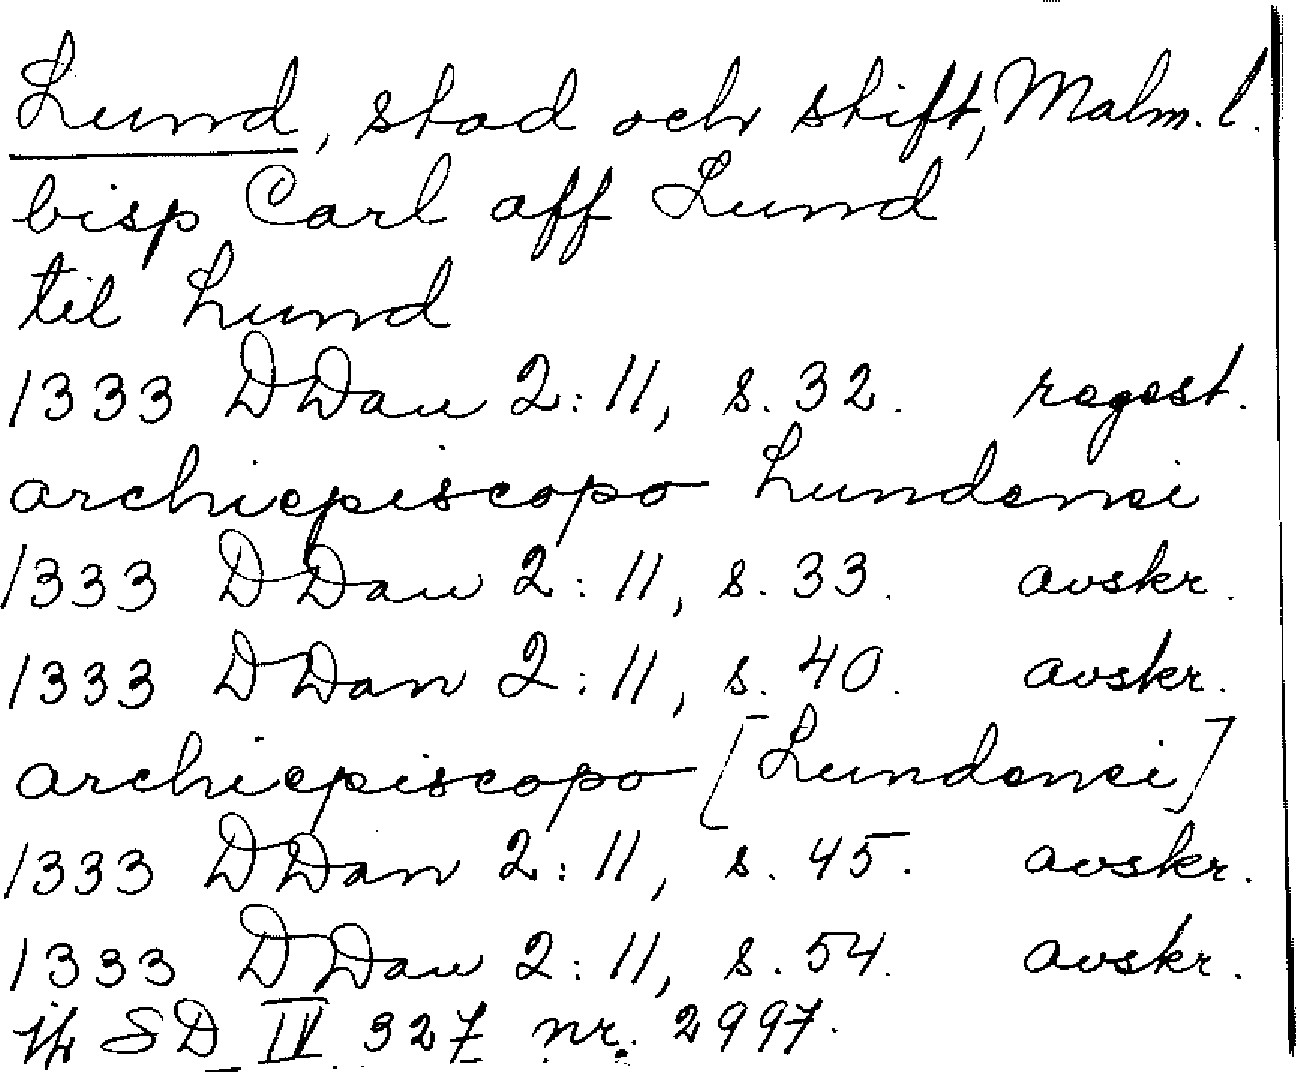 Lund, stad och stift, Malm. l.
bisp Carl aff Lund
til Lund
1333 DDan 2:11, s. 32. regest.
archiepiscopo Lundensi
1333 DDan 2:11, s. 33. avskr.
1333 DDan 2:11, s. 40. avskr.
archiepiscopo [Lundensi]
1333 DDan 2:11, s. 45. avskr.
1333 DDan 2:11, s. 54. avskr.
jfr SD IV 327 nr. 2997.